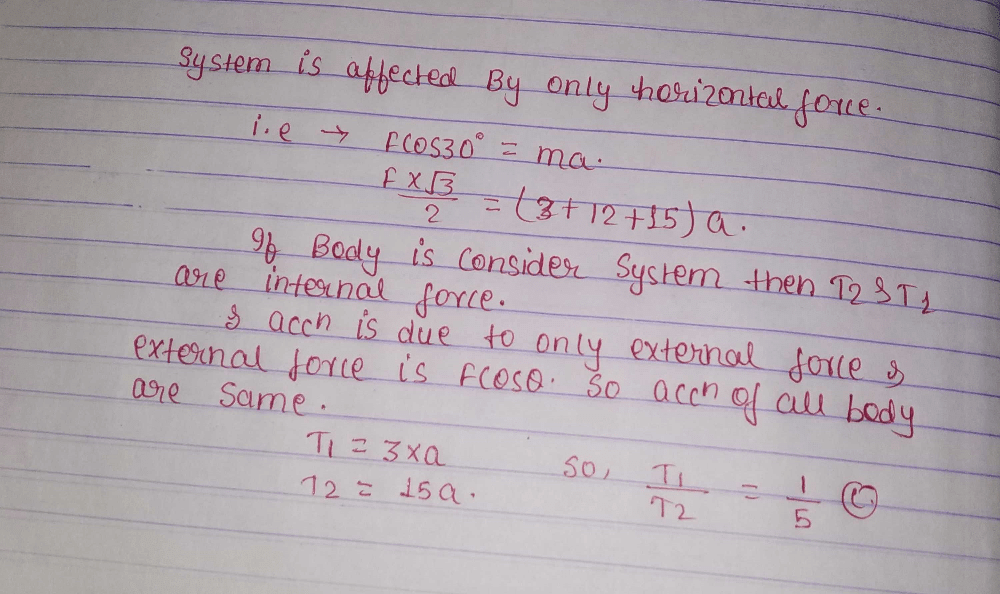 System is affected By only horizontal force.
i.e → Fcos30° = ma.
F×√3/2 = (3+12+15) a.
If Body is consider System then T2 & T1
are internal force.
& accn is due to only external force &
external force is Fcosθ. So accn of all body
are same.
T1 = 3×a
T2 = 15a.
So, T1/T2 = 1/5 (C)